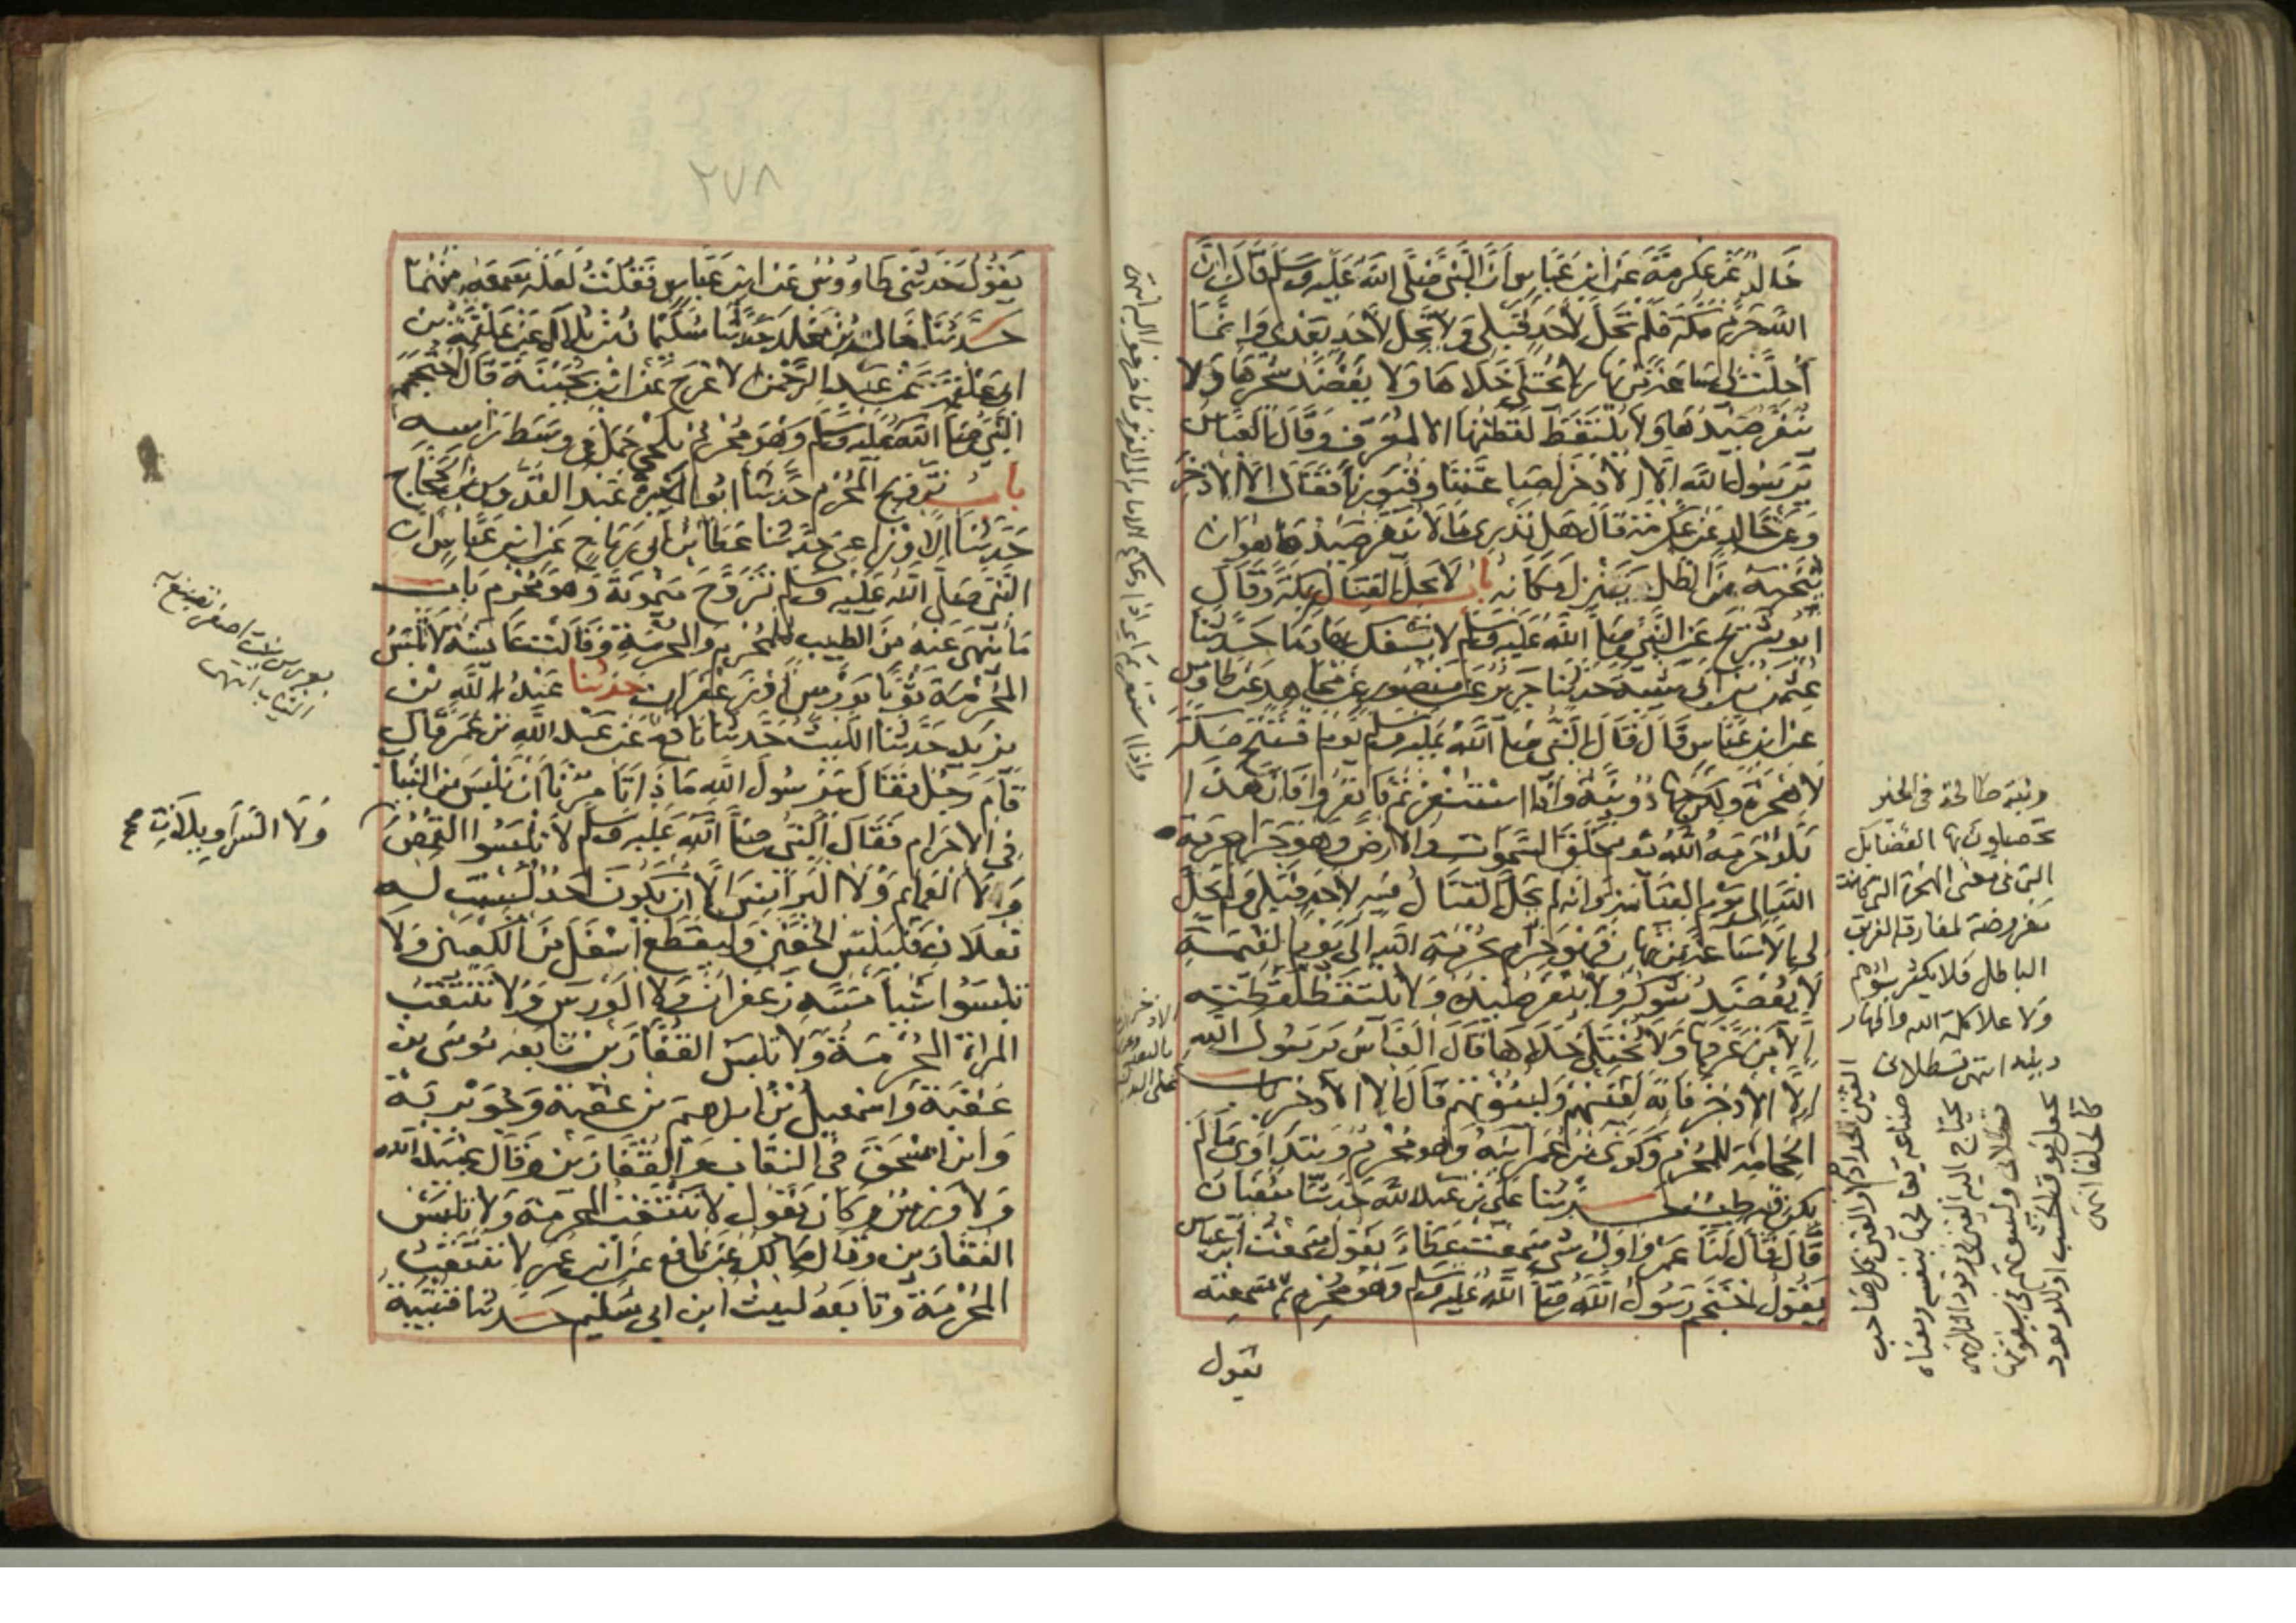 خالد عن عكرمة عن ابن عباس ان النبي صلى الله عليه وسلم قال ان
الله حرم مكة فلم تحل لأحد قبلي ولا تحل لأحد بعدي وانما
أحلت لي ساعة من نهار لا يختلى خلاها ولا يعضد شجرها ولا
ينفر صيدها ولا يلتقط لقطتها الا لمعرف وقال العباس
يرسول الله الا الاذخر لصاغتنا وقبورنا فقال الا الاذخر
وعن خالد عن عكرمة قال هل تدري ما لا ينفر صيدها هو ان
ينحيه من الظل ينزل مكانه باب لا يحل القتال بمكة وقال
ابو شريح عن النبي صلى الله عليه وسلم لا يسفك بها دما حدثنا
عثمن بن ابي شيبة حدثنا جرير عن منصور عن مجاهد عن طاوس
عن ابن عباس قال قال النبي صلى الله عليه وسلم يوم فتتح مكة
لا هجرة ولكن جهاد ونية واذا استنفرتم فانفروا فان هذا
بلد حرمه الله يوم خلق السموات والارض وهو حرام بحرمة
الله الى يوم القيامة وانه لم يحل القتال فيه لاحد قبلي ولم يحل
لي الا ساعة من نهار فهو حرام بحرمة الله الى يوم القيمة
لا يعضد شوكه ولا ينفر صيده ولا يلتقط لقطته
إلا من عرفها ولا يختلى خلاها قال العباس يرسول الله
إلا الاذخر فانه لقينهم ولبيوتهم قال الا الاذخر باب
الحجامة للمحرم وكوى ابن عمر ابنه وهو محرم ويتداوى ما لم
يكن فيه طيب حدثنا علي بن عبد الله حدثنا سفيان
قال قال لنا عمرو اول شي سمعت عطاء يقول سمعت ابن عباس
يقول احتجم رسول الله صلى الله عليه وسلم وهو محرم ثم سمعته
يقول
ونية صالحة في الخير
تحصلون بها الفضايل
التي في معنى الهجرة التي كانت
مفروضة لمفارقة الفريق
الباطل فلا يكثر سوادهم
ولا علا كلمة الله واظهار
دينه انتهى قسطلاني
يقول حدثني طاووس عن ابن عباس فقلت لعله سمعه منهما
حدثنا خالد بن مخلد حدثنا سليمان بن بلال عن علقمة بن
ابي علقمة عن عبد الرحمن الاعرج عن ابن بحينة قال احتجم
النبي صلى الله عليه وسلم وهو محرم بلحي جمل في وسط راسه
باب تزويج المحرم حدثنا ابو المغيرة عبد القدوس بن الحجاج
حدثنا الاوزاعي حدثنا عطا بن ابي رباح عن ابن عباس ان
النبي صلى الله عليه وسلم تزوج ميمونة وهو محرم باب
ما ينهى عنه من الطيب للمحرم والمحرمة وقالت عايشة لا تلبس
المحرمة ثوبا بورس او زعفران حدثنا عبد الله بن
يزيد حدثنا الليث حدثنا نافع عن عبد الله بن عمر قال
قام رجل فقال يرسول الله ماذا تامرنا ان نلبس من الثياب
في الاحرام فقال النبي صلى الله عليه وسلم لا تلبسوا القمص
ولا العمايم ولا البرانس الا ان يكون احد ليست له
نعلان فليلبس الخفين وليقطع اسفل من الكعبين ولا
تلبسوا شيأ مسه زعفران ولا الورس ولا تنتقب
المراة المحرمة ولا تلبس القفازين تابعه موسى بن
عقبة واسمعيل بن ابراهيم بن عقبة وجويرية
وابن اسحق في النقاب والقفازين وقال عبيد الله
ولا ورس وكان يقول لا تتنقب المحرمة ولا تلبس
القفازين وقال مالك عن نافع عن ابن عمر لا تنتقب
المحرمة وتابعه ليث ابن ابي سليم حدثنا قتيبة
ولا السراويلات صح
٢٧٨